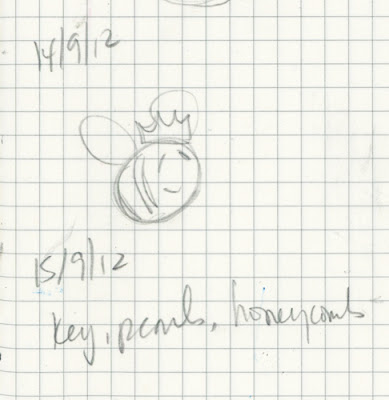 14/9/12
15/9/12
key, pearls, honeycombs